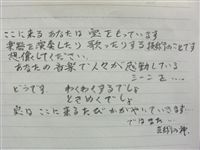 ここに来るあなたは宝をもっています
楽器を演奏したり歌ったりする技術のことです
想像してください。
あなたの音楽で人々が感動している
シーンを…
どうです わくわくするでしょ
ときめくでしょ
宝はここに来るたびかがやいていきます。
ではまた…
芸術の神